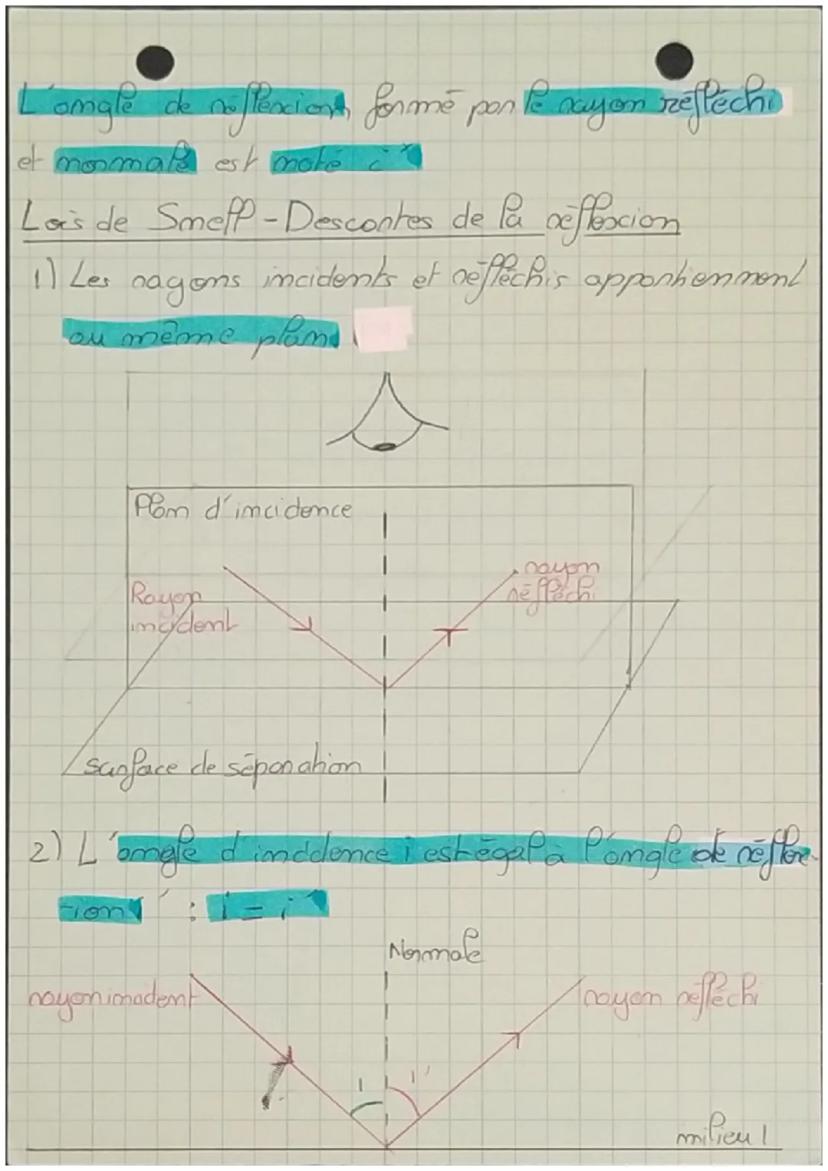 L'angle de réflexion, formé par le rayon réfléchi
et normale est noté i'
Lois de Snell-Descartes de la réflexion
1) Les rayons incidents et réfléchis appartiennent
au même plan
Plan d'incidence
Rayon
incident
rayon
réfléchi
surface de séparation
2) L'angle d'incidence i est égal à l'angle de réflex-
ion i' : i = i'
Normale
rayon incident
rayon réfléchi
i
i'
milieu 1